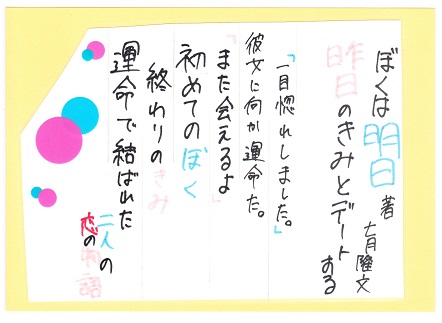 ぼくは明日
昨日のきみとデートする
著 七月隆文
「一目惚れしました。」
彼女に向か運命た。
「また会えるよ」
初めてのぼく
終わりのきみ
運命で結ばれた
二人の
恋の物語